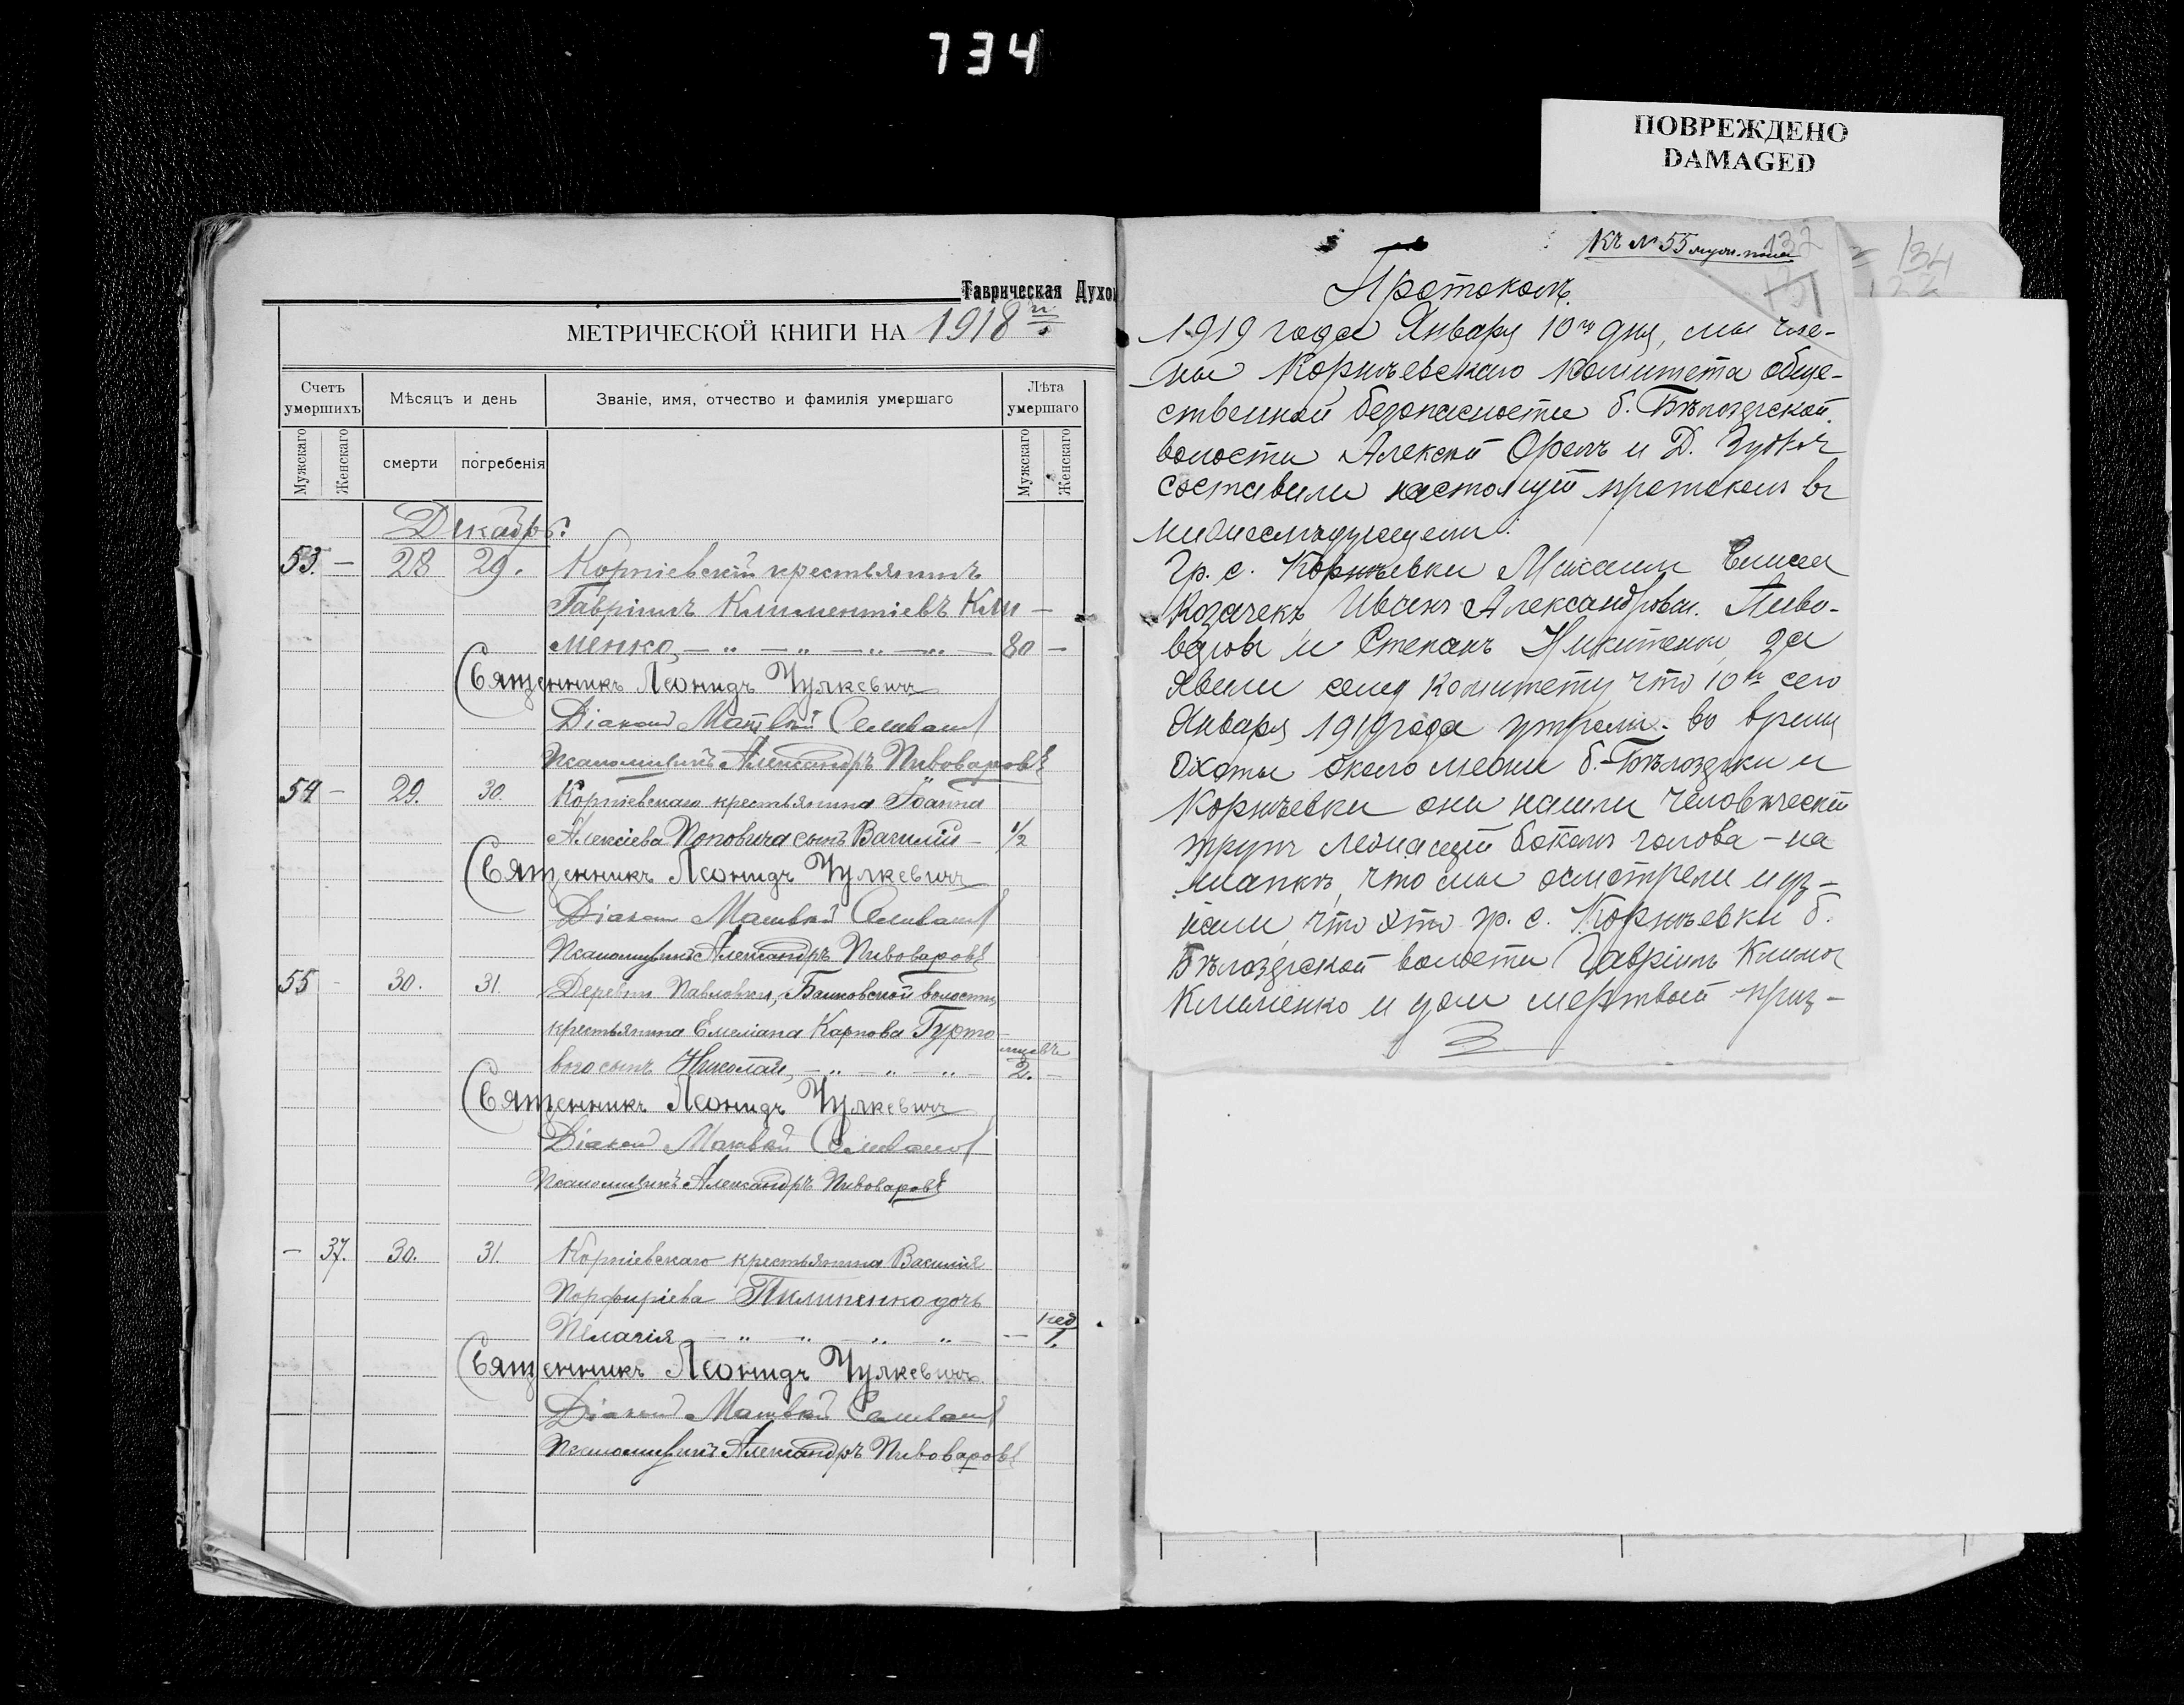 734
ПОВРЕЖДЕНО
DAMAGED
Таврическая Духо
МЕТРИЧЕСКОЙ КНИГИ НА 1918 г.
Счетъ умершихъ
Мѣсяцъ и день
Званіе, имя, отчество и фамилія умершаго
Лѣта умершаго
Мужскаго
Женскаго
смерти
погребенія
Мужскаго
Женскаго
Декабрь:
53. — 28 29. Корніевскій крестьянинъ
Гавріилъ Климентіевъ Кли —
менко, — " — " — " — " — 80 —
Священникъ Леонидъ Чулкевичъ
Діаконъ Матвѣй Селиванов
Псаломщикъ Александръ Пивоваровъ
54 — 29. 30. Корніевскаго крестьянина Іоанна
Алексіева Поповича сынъ Василій — 1/2
Священникъ Леонидъ Чулкевичъ
Діакон Матвѣй Селиванов
Псаломщикъ Александръ Пивоваровъ
55 - 30. 31. Деревни Павловки, Балковской волости,
крестьянина Емеліана Карпова Гурто
ваго сынъ Николай, — " — " — " мѣсяцъ 2. —
Священникъ Леонидъ Чулкевичъ
Діаконъ Матвѣй Селиванов
Псаломщикъ Александръ Пивоваровъ
— 37. 30. 31. Корніевскаго крестьянина Василія
Порфиріева Пилипенко дочь
Пелагія — " — " — " — " — — нед 1.
Священникъ Леонидъ Чулкевичъ
Діаконъ Матвѣй Селиванов
Псаломщикъ Александръ Пивоваровъ
Къ № 55 муж. пола
132
134
Протоколъ.
1919 года Января 10го дня, мы чле-
ны Корнѣевскаго Комитета обще-
ственной безопасности б. Бѣлозерской
волости Алексѣй Орелъ и Д. Зубко
составили настоящій протоколъ въ
нижеслѣдующемъ:
Гр. с. Корнѣевки Михаилъ
Козачекъ Иванъ Александров. Пиво-
варов и Степанъ Никитенко за
явили сему Комитету что 10го сего
Января 1919 года утромъ во время
охоты около межи б.-Бѣлозерки и
Корнѣевки они нашли человѣческій
трупъ лежащій бокомъ голова - на
шапкѣ, что мы осмотрели и уз-
нали, что это гр. с. Корнѣевки б.
Бѣлозерской волости Гавріилъ Климов
Клименко и уже мертвый приз-